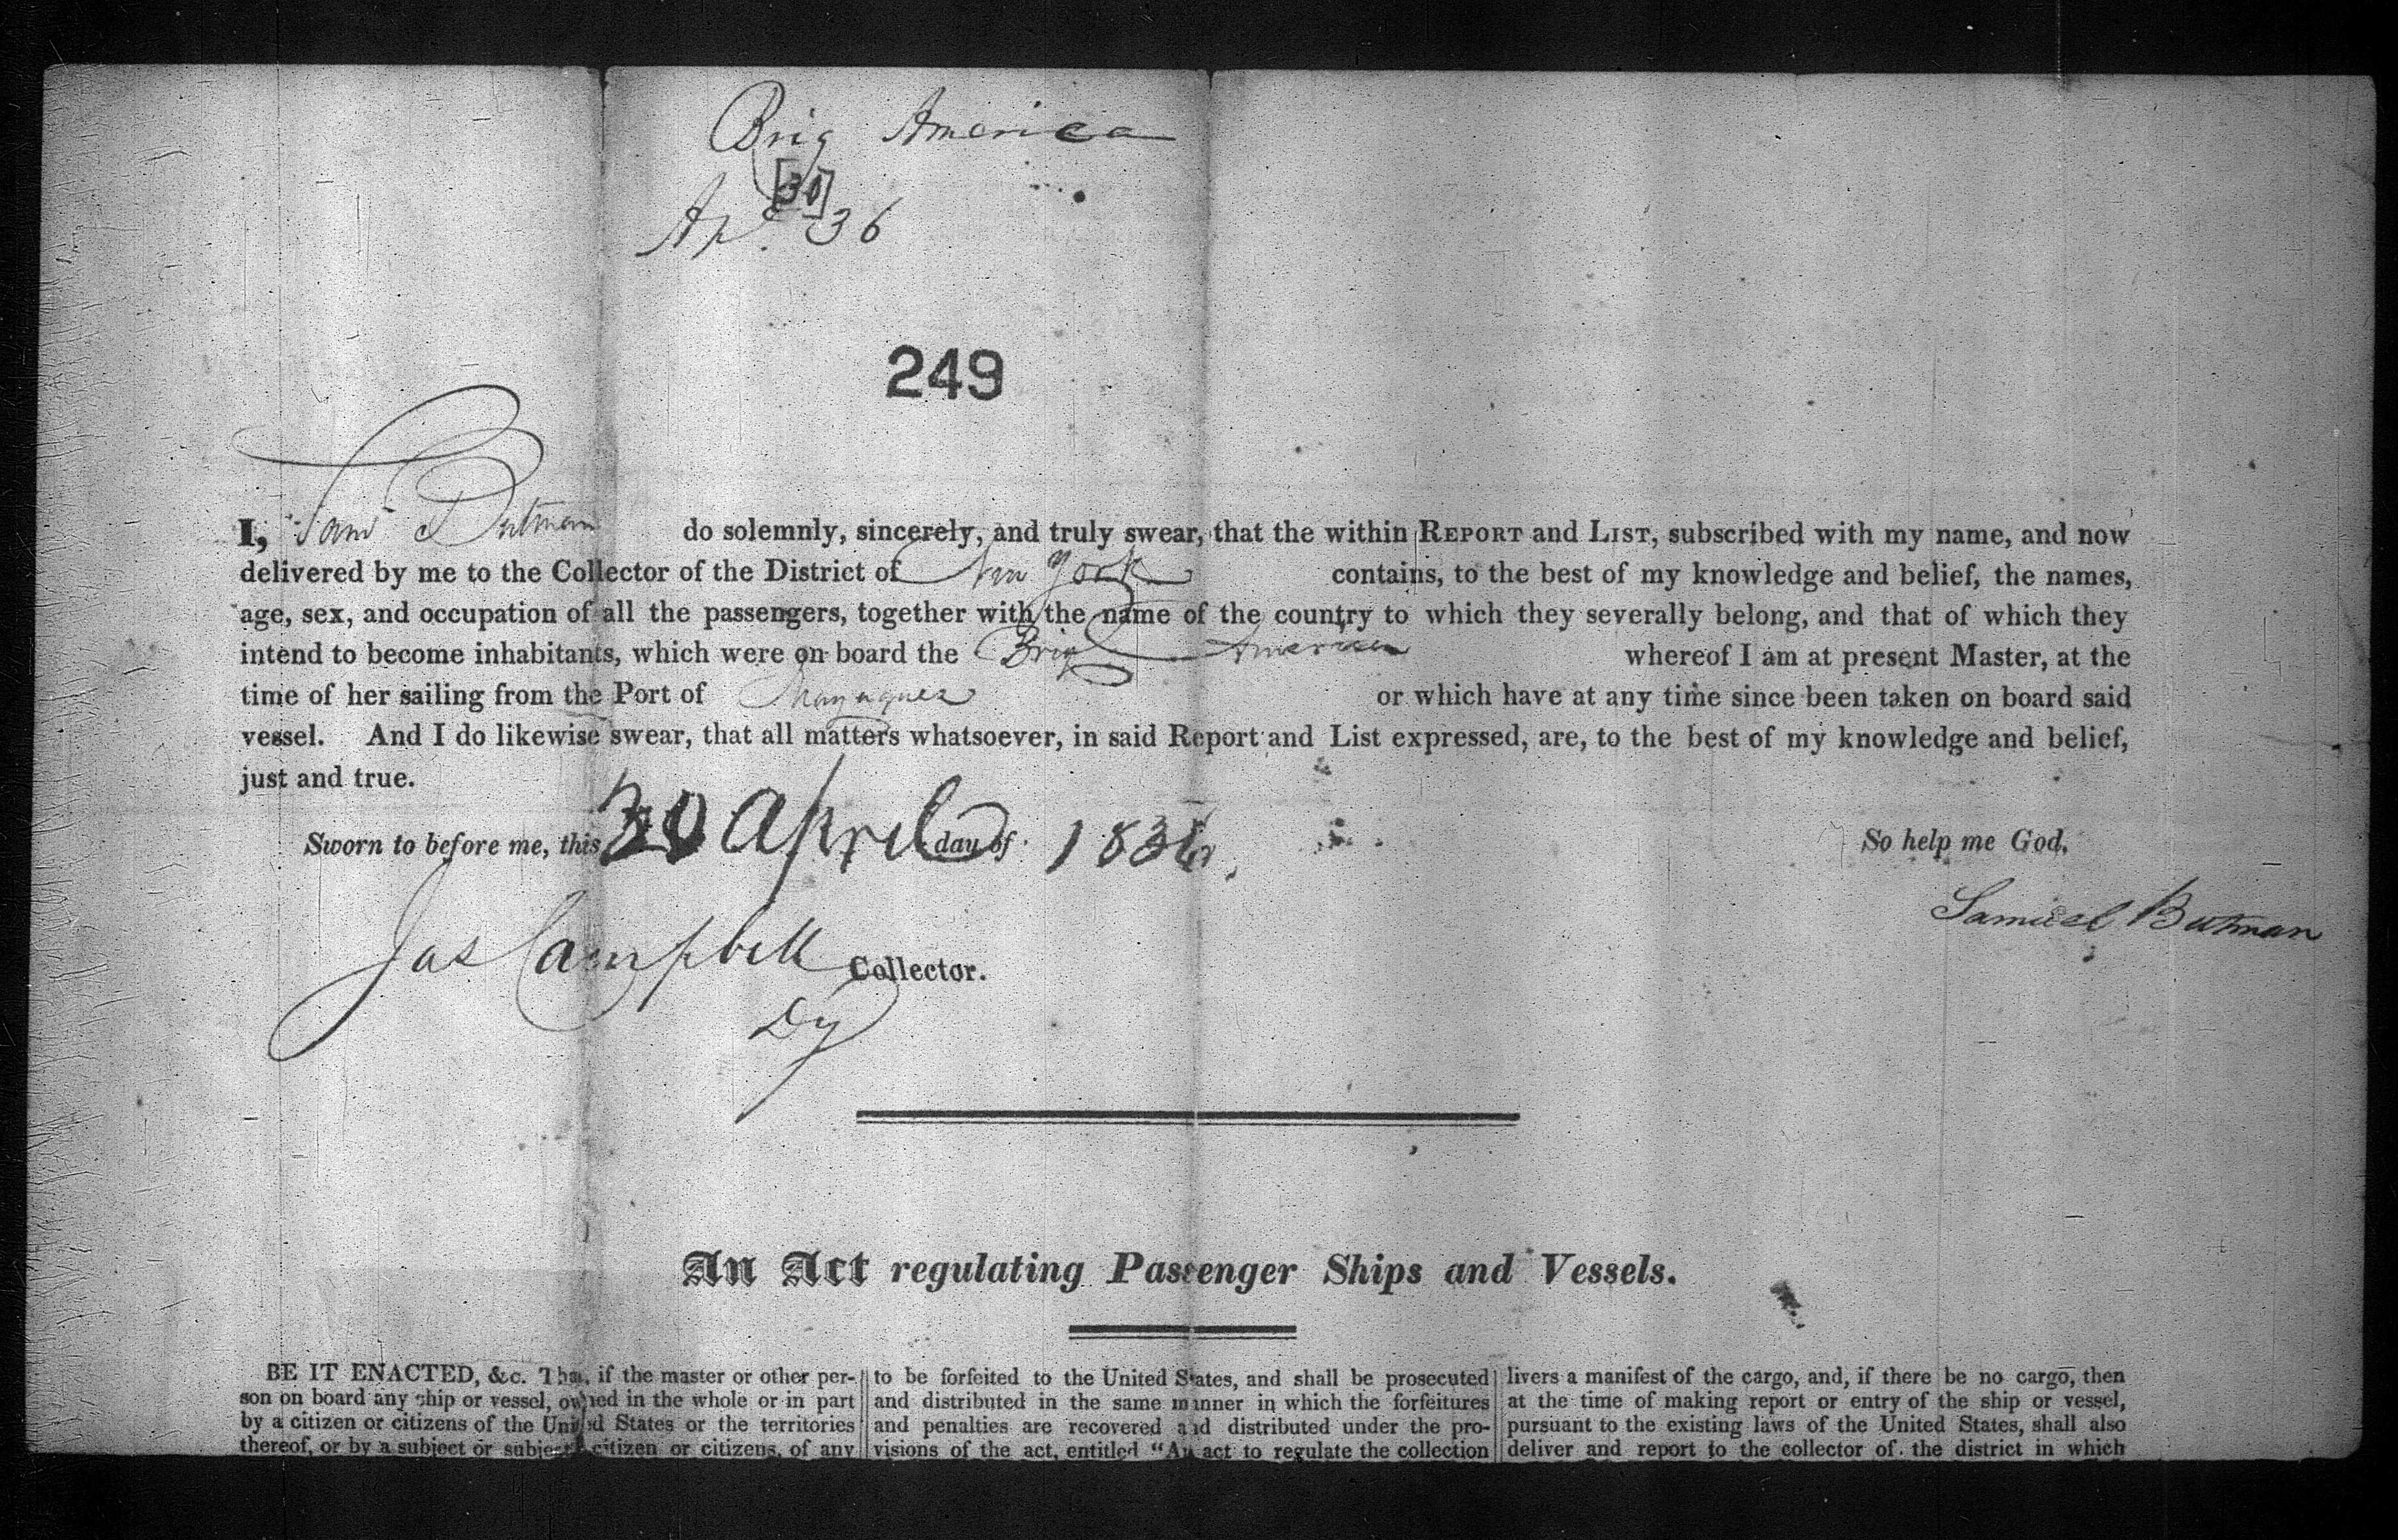 Brig America
[30]
Apl. 36
249
I, Saml Butman do solemnly, sincerely, and truly swear, that the within REPORT and LIST, subscribed with my name, and now
delivered by me to the Collector of the District of New York contains, to the best of my knowledge and belief, the names,
age, sex, and occupation of all the passengers, together with the name of the country to which they severally belong, and that of which they
intend to become inhabitants, which were on board the Brig America whereof I am at present Master, at the
time of her sailing from the Port of Mayaguez or which have at any time since been taken on board said
vessel. And I do likewise swear, that all matters whatsoever, in said Report and List expressed, are, to the best of my knowledge and belief,
just and true.
Sworn to before me, this 30 April day of 1836. So help me God.
Samuel Butman
Jas Campbell Collector.
Dy
An Act regulating Passenger Ships and Vessels.
BE IT ENACTED, &c. That, if the master or other per-
son on board any ship or vessel, owned in the whole or in part
by a citizen or citizens of the United States or the territories
thereof, or by a subject or subjects citizen or citizens, of any
to be forfeited to the United States, and shall be prosecuted
and distributed in the same manner in which the forfeitures
and penalties are recovered and distributed under the pro-
visions of the act, entitled "An act to regulate the collection
livers a manifest of the cargo, and, if there be no cargo, then
at the time of making report or entry of the ship or vessel,
pursuant to the existing laws of the United States, shall also
deliver and report to the collector of the district in which